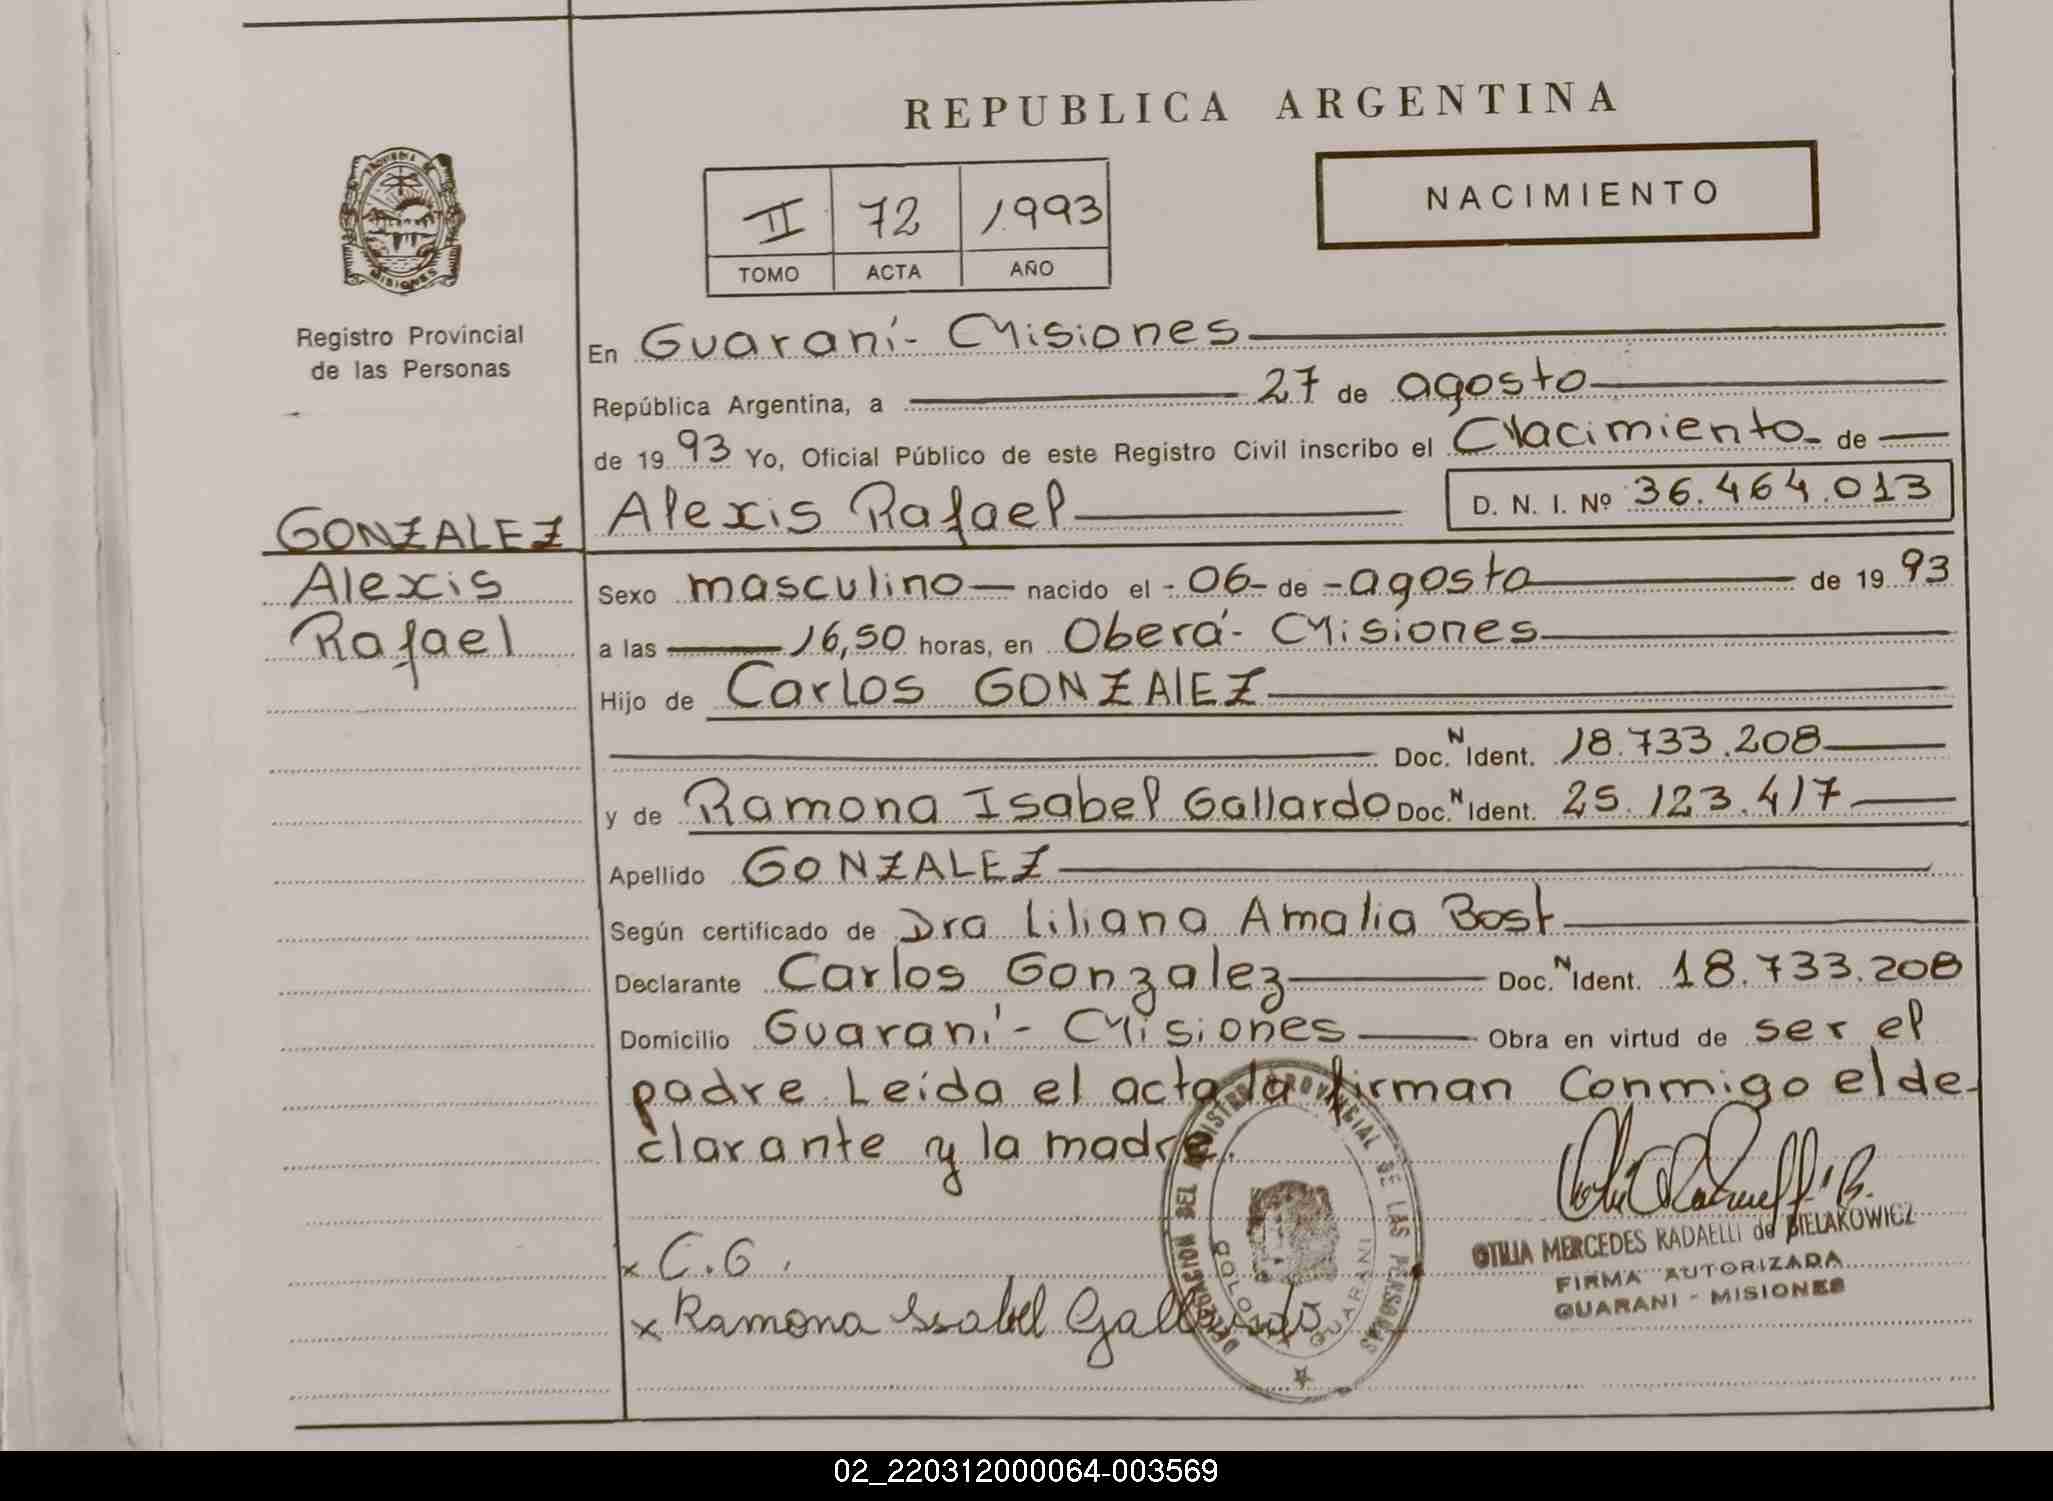 REPUBLICA ARGENTINA
NACIMIENTO
II 72 1993
TOMO ACTA AÑO
PROVINCIA DE
MISIONES
Registro Provincial
de las Personas
En Guaraní- Misiones
República Argentina, a 27 de agosto
de 1993 Yo, Oficial Público de este Registro Civil inscribo el Nacimiento- de
GONZALEZ
Alexis
Rafael
Alexis Rafael D. N. I. Nº 36.464.013
Sexo masculino nacido el -06- de -agosto de 1993
a las 16,50 horas, en Oberá- Misiones
Hijo de Carlos GONZAlEZ
Doc. N Ident. 18.733.208
y de Ramona Isabel Gallardo Doc. N Ident. 25.123.417
Apellido GONZALEZ
Según certificado de Dra Liliana Amalia Bost
Declarante Carlos Gonzalez Doc. N Ident. 18.733.208
Domicilio Guaraní- Misiones Obra en virtud de ser el
padre. Leida el acta la firman conmigo el de-
clarante y la madre.
DELEGACION DEL REGISTRO PROVINCIAL DE LAS PERSONAS
COLONIA GUARANI
OTILIA MERCEDES RADAELLI de BIELAKOWICZ
FIRMA AUTORIZADA
GUARANI - MISIONES
x C.G.
x Ramona Issabel Gallardo
02_220312000064-003569